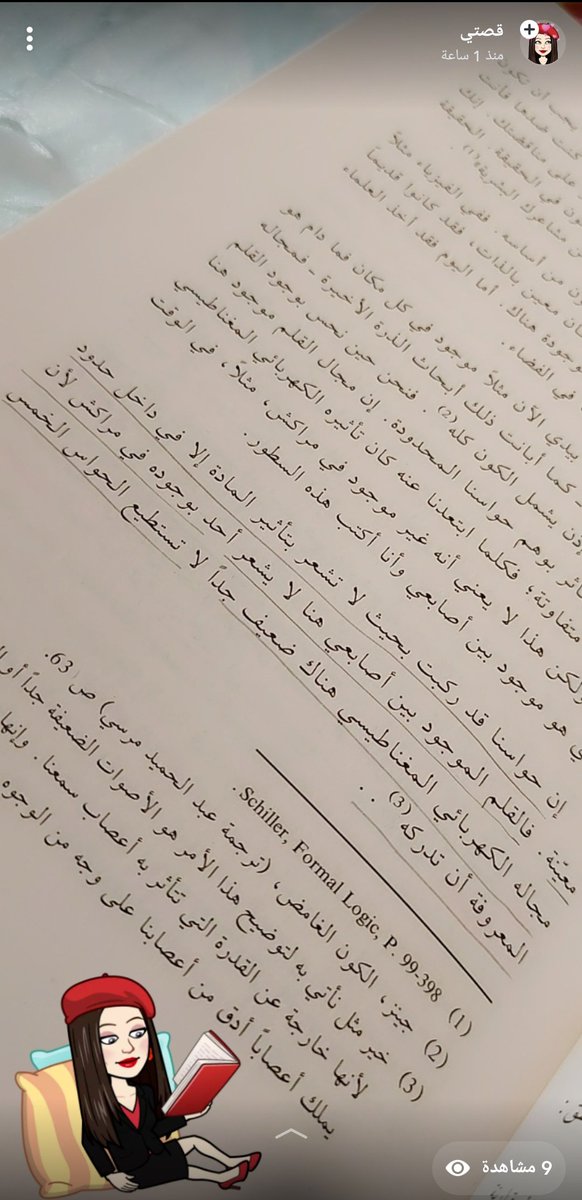 قصتي
منذ 1 ساعة
يجب أن تكون
على مناقضتك. إنك
في الحقيقة. الحقيقة
مشاعرك البشرية(1).
من أساسه. ففي الفيزياء مثلاً
معين بالذات، فقد كانوا قديماً
موجودة هناك. أما اليوم فقد أخذ العلماء
في الفضاء.
بيدي الآن مثلاً موجود في كل مكان فما دام هو
كما أبانت ذلك أبحاث الذرة الأخيرة - فمجاله
إذن يشمل الكون كله(2). فنحن حين نحس بوجود القلم
بوهم حواسنا المحدودة. إن مجال القلم موجود هنا
متفاوتة، فكلما ابتعدنا عنه كان تأثيره الكهربائي المغناطيسي
ولكن هذا لا يعني أنه غير موجود في مراكش، مثلاً، في الوقت
هو موجود بين أصابعي وأنا أكتب هذه السطور.
إن حواسنا قد ركبت بحيث لا تشعر بتأثير المادة إلا في داخل حدود
معيّنة. فالقلم الموجود بين أصابعي هنا لا يشعر أحد بوجوده في مراكش لأن
مجاله الكهربائي المغناطيسي هناك ضعيف جداً لا تستطيع الحواس الخمس
المعروفة أن تدركه(3) . .
(1) Schiller, Formal Logic, P. 99-398.
(2) جينز، الكون الغامض، (ترجمة عبد الحميد مرسي) ص 63.
(3) خير مثل نأتي به لتوضيح هذا الأمر هو الأصوات الضعيفة جداً أو
لأنها خارجة عن القدرة التي تتأثر به أعصاب سمعنا. وإنها
يملك أعصاباً أدق من أعصابنا على وجه من الوجوه
9 مشاهدة